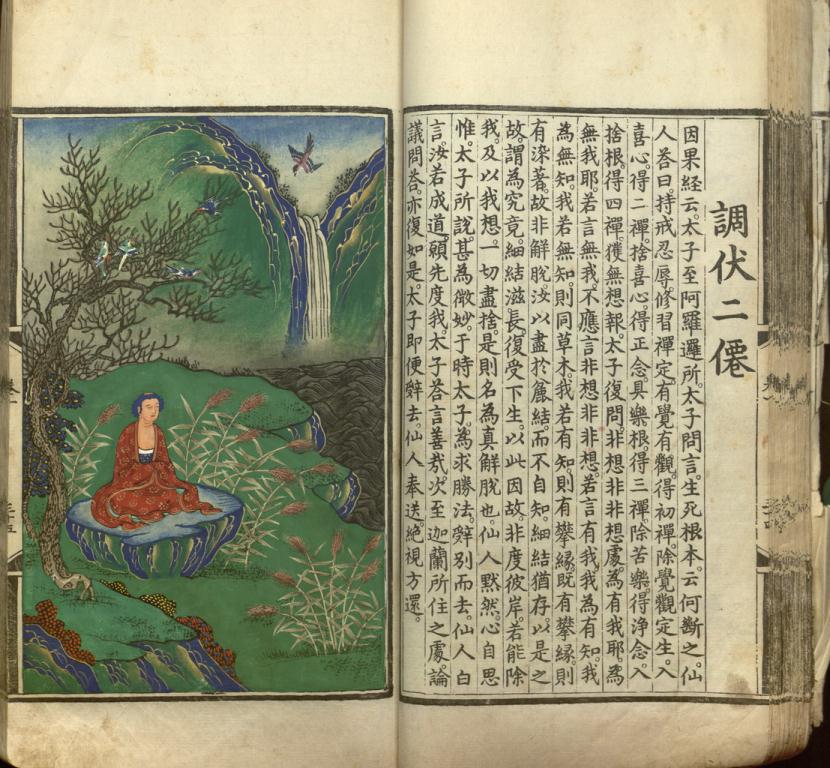 調伏二僊
因果経云。太子至阿羅邏所。太子問言。生死根本。云何斷之。仙
人荅曰。持戒忍辱。修習禪定。有覺有觀。得初禪。除覺觀定生。入
喜心。得二禪。捨喜心。得正念。具樂根。得三禪。除苦樂。得浄念。入
捨根。得四禪。獲無想報。太子復問。非想非非想處。為有我耶。為
無我耶。若言無我。不應言非想非非想。若言有我。我為有知。我
為無知。我若無知。則同草木。我若有知。則有攀縁。既有攀縁。則
有染著。故非解脫。汝以盡於麄結。而不自知。細結猶存。以是之
故。謂為究竟。細結滋長。復受下生。以此因故。非度彼岸。若能除
我。及以我想。一切盡捨。是則名為真解脫也。仙人黙然。心自思
惟。太子所說。甚為微妙。于時太子。為求勝法。辤別而去。仙人白
言。汝若成道。願先度我。太子荅言善哉。次至迦蘭所住之處。論
議問荅。亦復如是。太子即便辤去。仙人奉送。絶視方還。